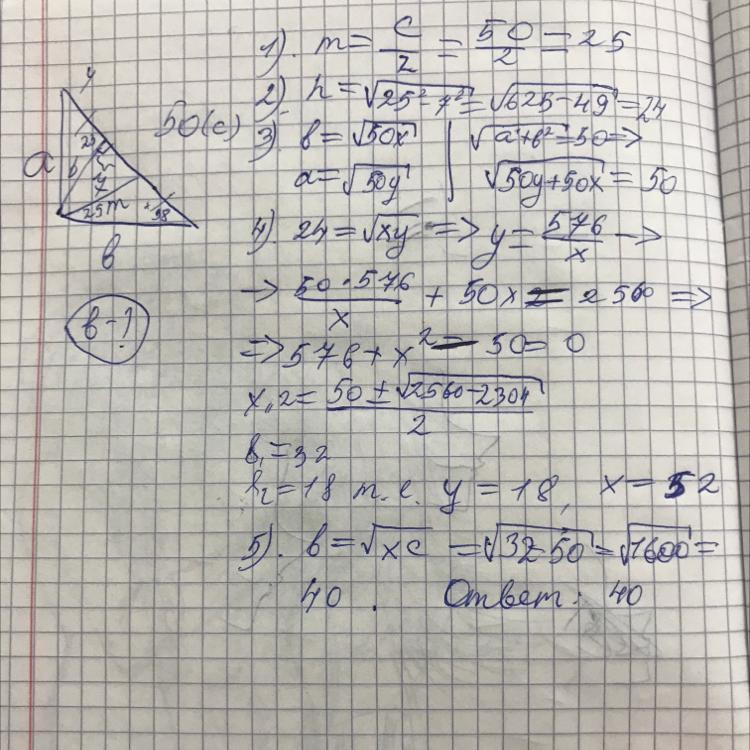 y
50(c)
a
h
7
25m
b
b-?
1). m = c/2 = 50/2 = 25
2) h = √(25²-7²) = √(625-49) = 24
3) b = √(50x) | √(a²+b²) = 50 =>
a = √(50y) | √(50y+50x) = 50
4) 24 = √(xy) => y = 576/x ->
-> 50·576/x + 50x = 2500 =>
=> 576 + x² - 50 = 0
x₁,₂ = (50 ± √(2500-2304))/2
b₁ = 32
b₂ = 18 т.е. y = 18, x = 32
5). b = √(xc) = √(32·50) = √1600 =
40. Ответ: 40